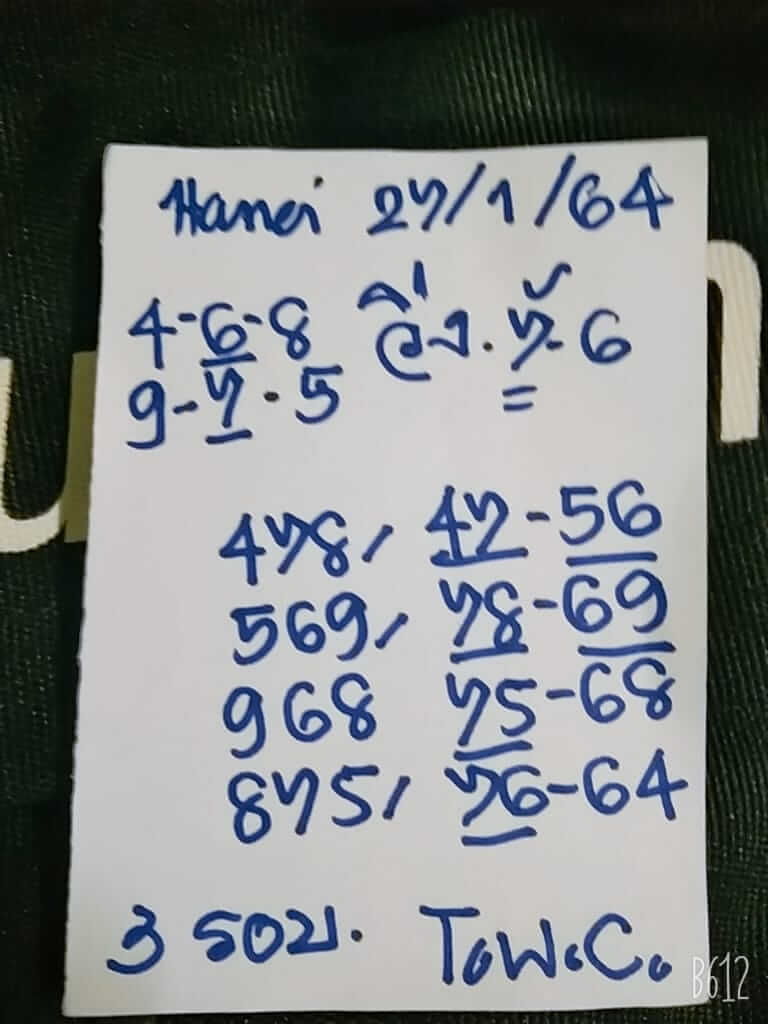 Hanoi 27/1/64
4-6-8 วิ่ง. 7-6
9-7-5
478, 47-56
569, 78-69
968 75-68
875, 76-64
3 รอบ. T.W.C.
B612